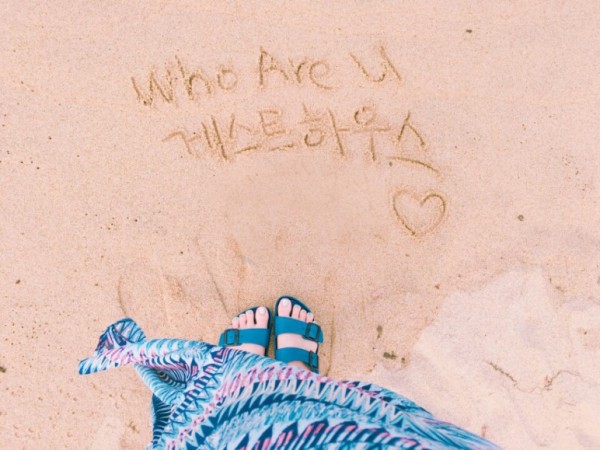 Who Are U
게스트하우스